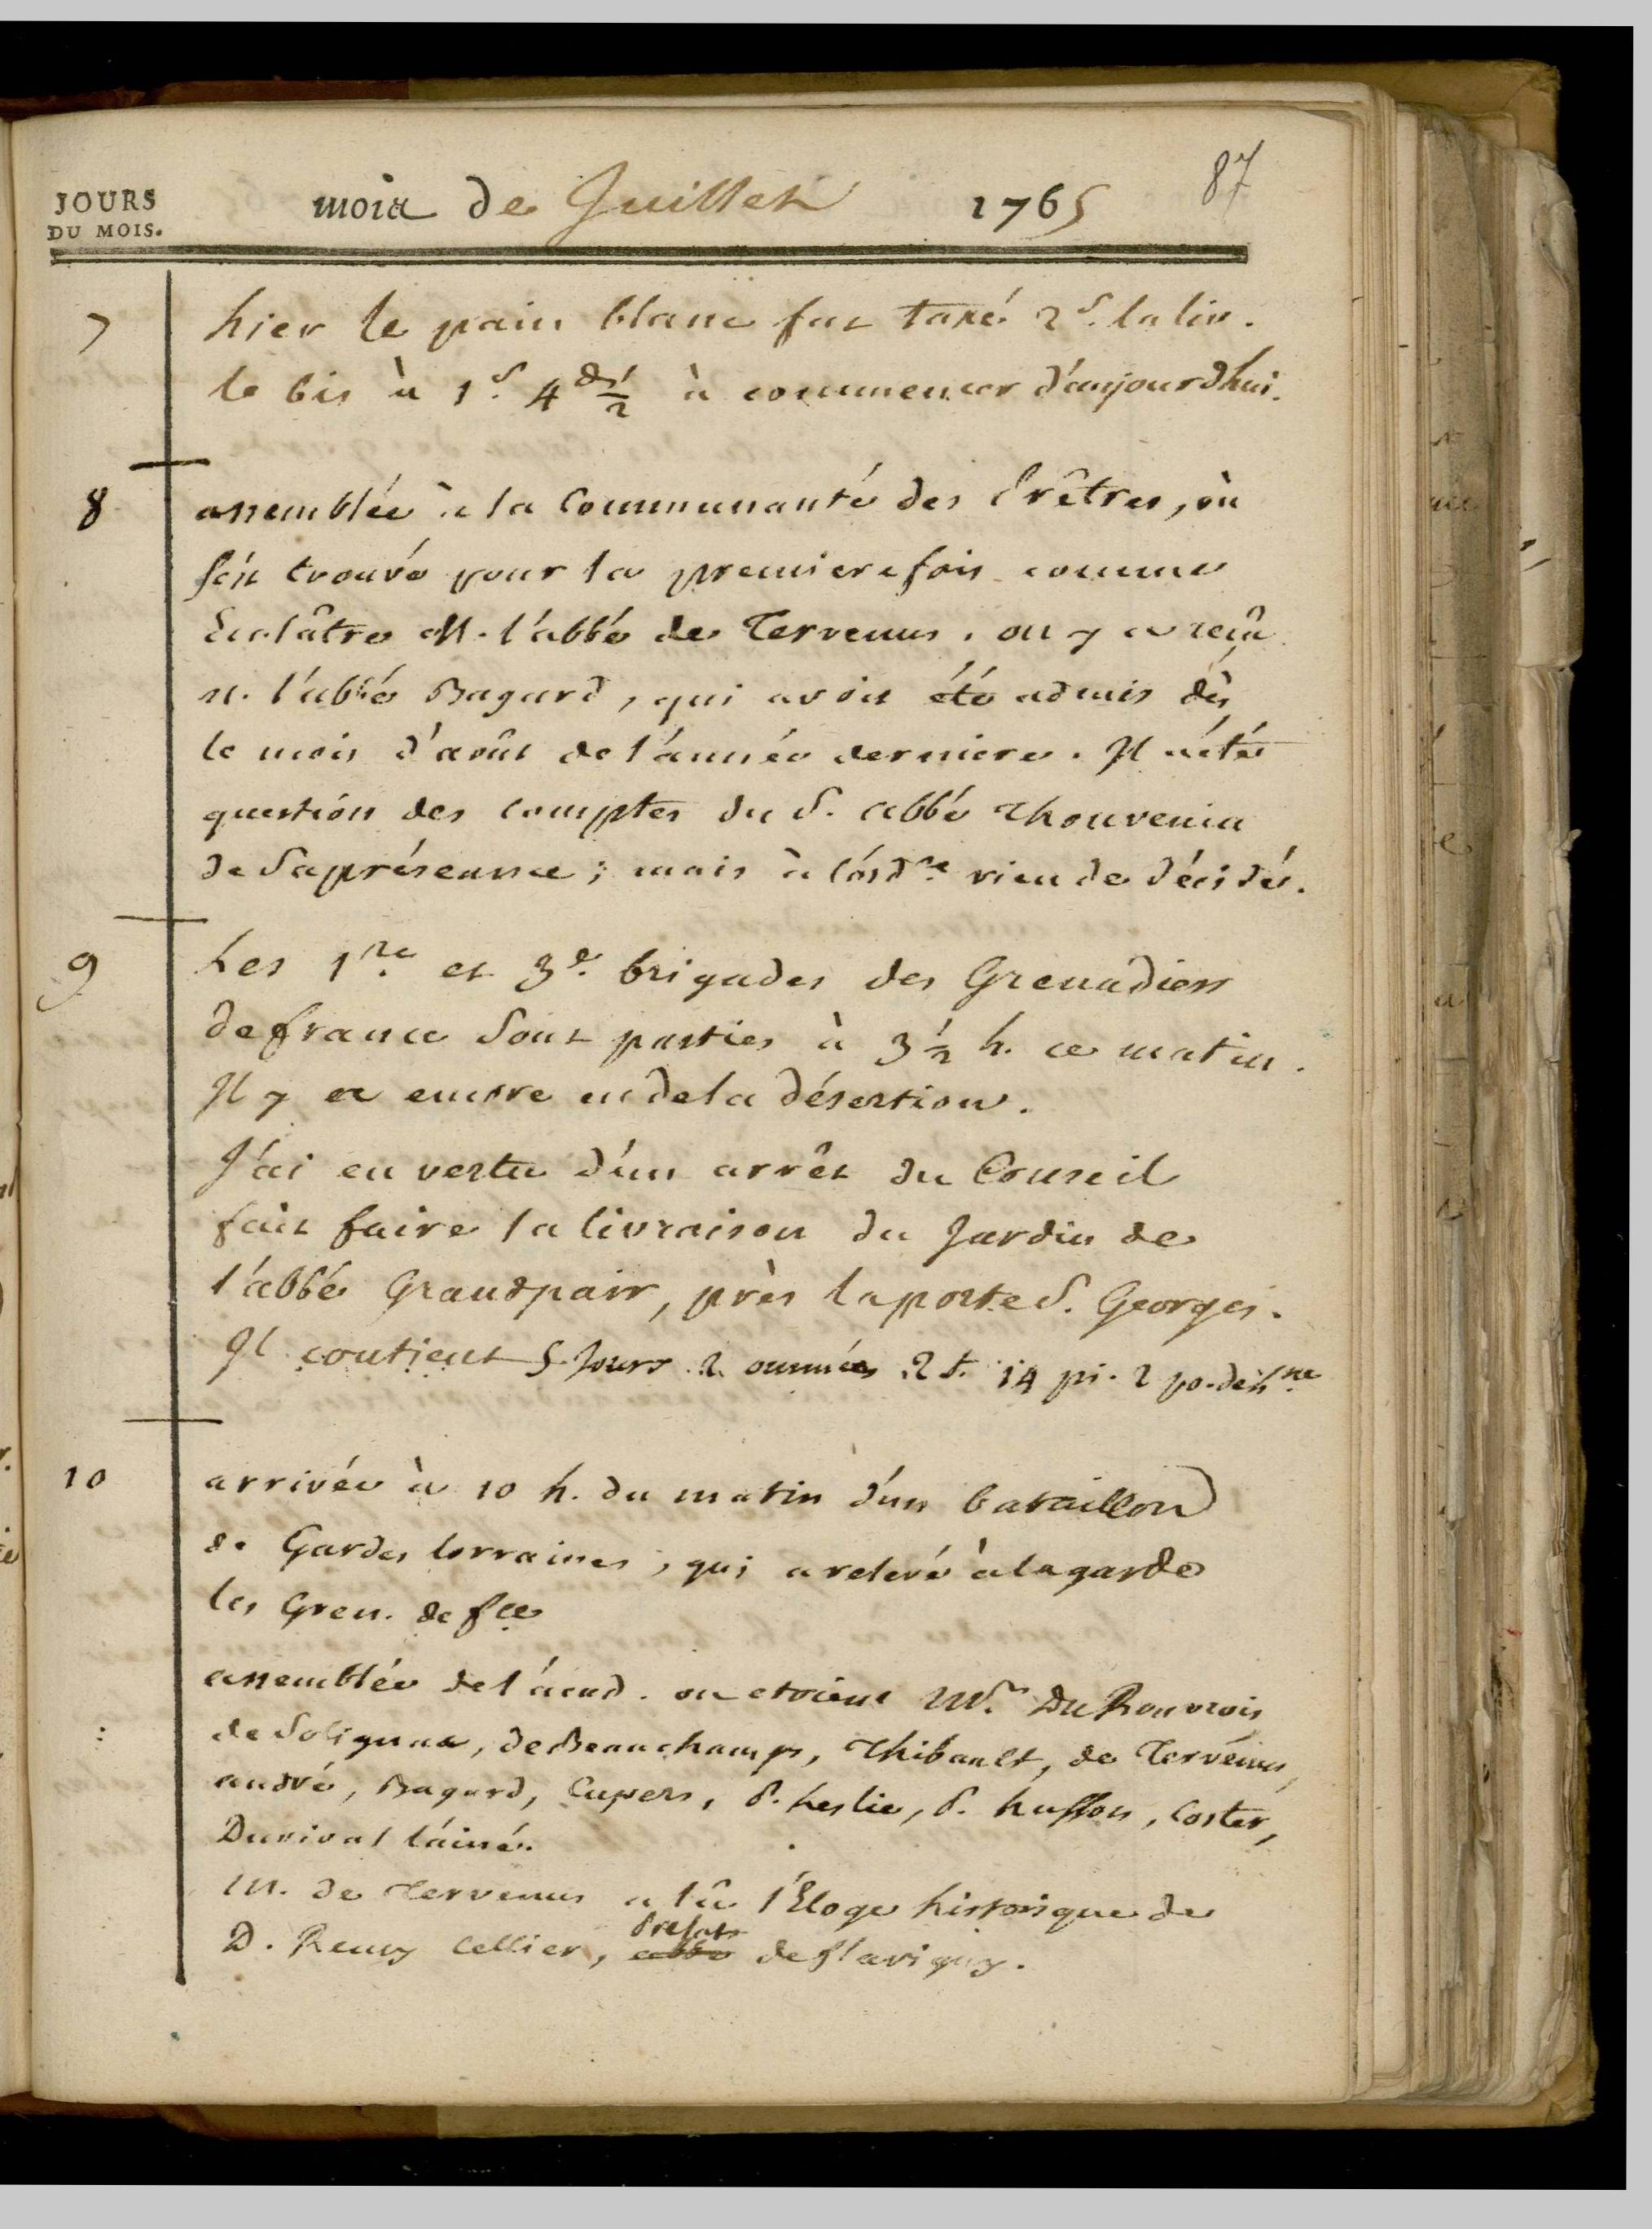 87
JOURS DU MOIS. mois de Juillet 1765
7 hier le pain blanc fut taxé 2 s. la liv.
le bis à 1 s. 4 d. 1/2 à commencer d'aujourdhui.
8 assemblée à la Communauté des Prêtres, où
s'est trouvé pour la premiere fois comme
Ecolâtre M. l'abbé de Tervenus. on y a reçu
M. l'abbé Bagard, qui avoit été admis dès
le mois d'août de l'année derniere. Il a été
question des comptes du S. abbé Thouvenin
de sa préséance; mais à l'ord.re rien de décidé.
9 Les 1.re et 3.e brigades des Grenadiers
de france sont parties à 3 1/2 h. ce matin.
Il y a encore eu de la désertion.
J'ai en vertu d'un arrêt du Conseil
fait faire la livraison du Jardin de
l'abbé Grandpair, près la porte S. Georges.
Il contient 5 Jours 2 ommées 2 t. 14 pi. 2 po.
10 arrivée à 10 h. du matin d'un bataillon
de Gardes lorraines, qui a relevé à la garde
les Gren. de fce
assemblée de l'acad. ou etoient MM.rs Du Rouvrois
de Solignac, de Beauchamp, Thibault, de Tervenus,
andré, Bagard, Cupers, P. Leslie, P. husson, Coster,
Durival l'ainé.
M. de Tervenus a lû l'Eloge historique de
D. Remy Cellier, abbé Prelat de flavigny.